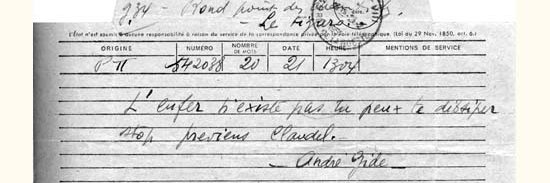 234 - Rond point des
Le Figaro
L'État n'est soumis à aucune responsabilité à raison du service de la correspondance privée par la voie télégraphique. (Loi du 29 Nov. 1850, art. 6.)
ORIGINE NUMÉRO NOMBRE DE MOTS DATE HEURE MENTIONS DE SERVICE
542038 20 21 1304
L'enfer n'existe pas tu peux te dissiper
stop previens Claudel.-
- André Gide -